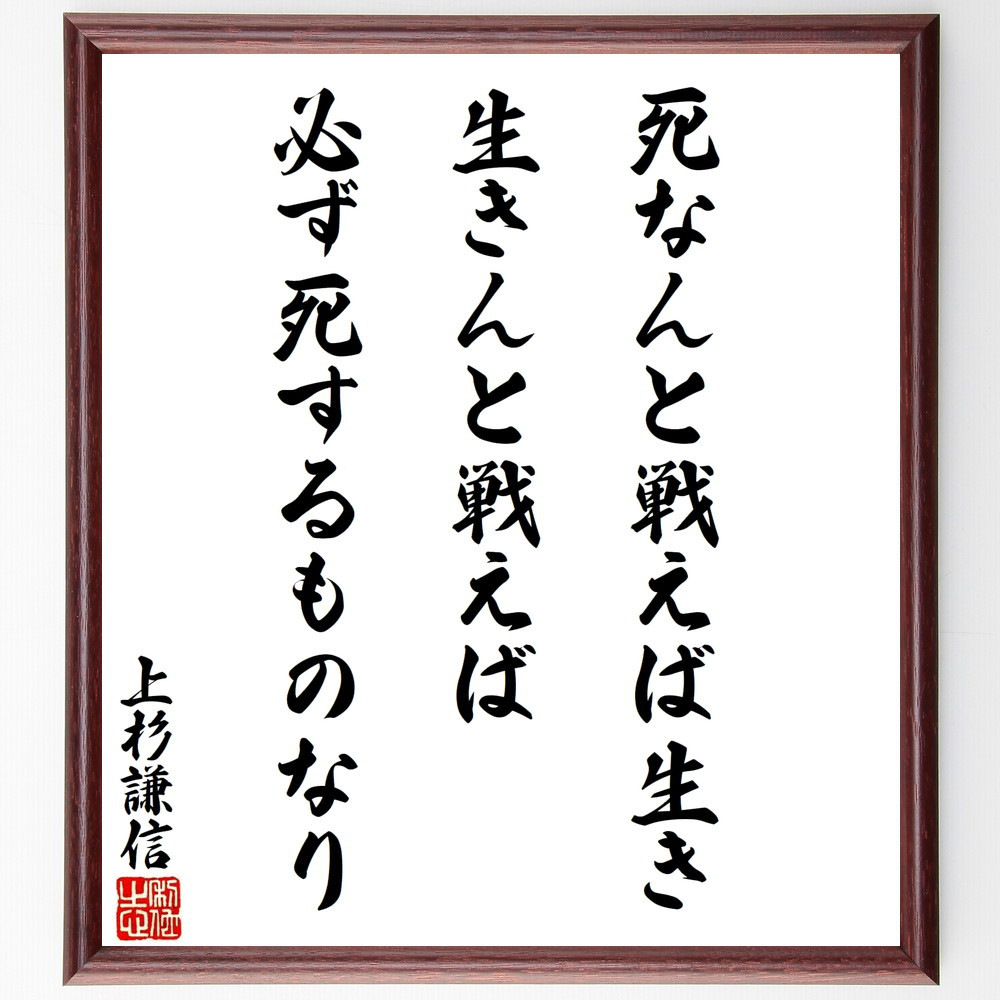 死なんと戦えば生き
生きんと戦えば
必ず死するものなり
上杉謙信